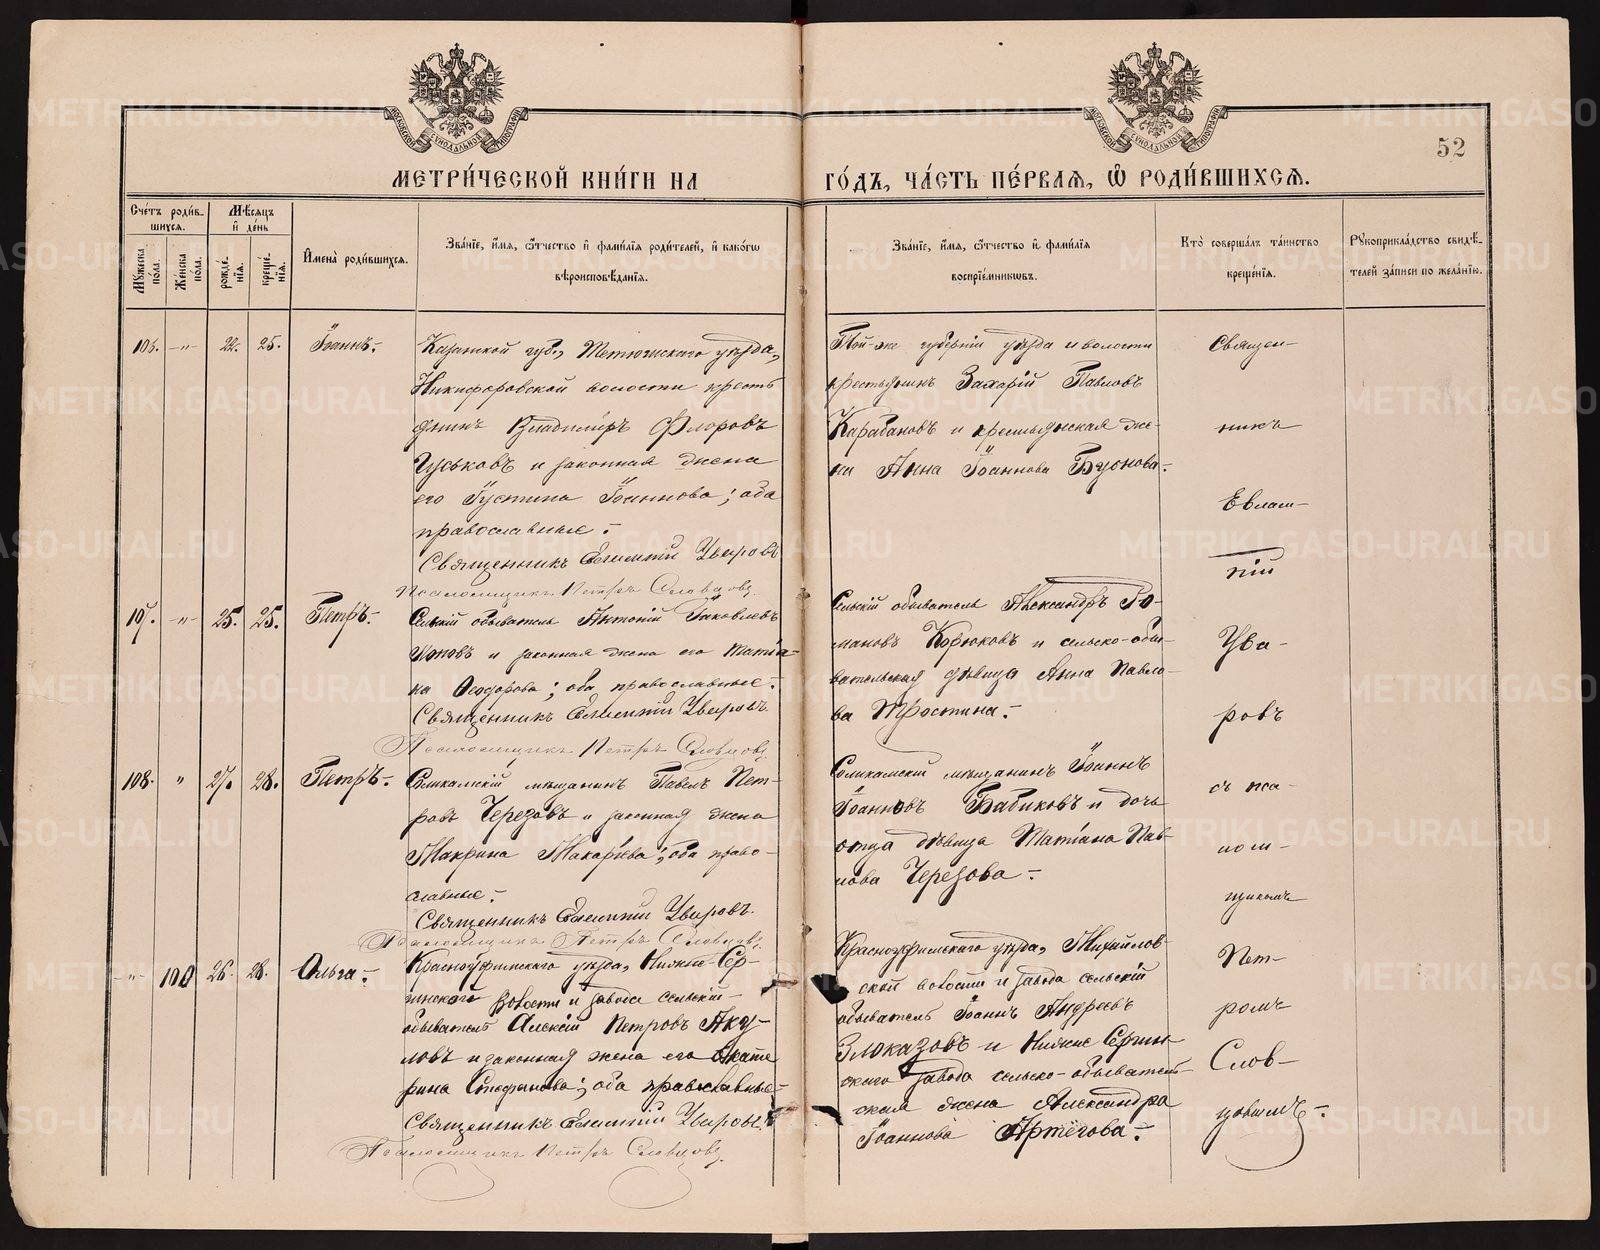 МОСКОВСКОЙ СѴНОДАЛЬНОЙ ТИПОГРАФІИ
МОСКОВСКОЙ СѴНОДАЛЬНОЙ ТИПОГРАФІИ
52
МЕТРИ́ЧЕСКОЙ КНИ́ГИ НА
ГО́ДЪ, ЧА́СТЬ ПЕ́РВАѦ, Ѽ РОДИ́ВШИХСѦ.
Сче́тъ роди́в-
шихсѧ.
Мꙋ́жеска по́ла.
Же́нска по́ла.
Мѣ́сѧцъ
и҆ де́нь
рожде́-
нїѧ.
креще́-
нїѧ.
И҆мена̀ роди́вшихсѧ.
Зва́нїе, и҆́мѧ, ѻ҆́тчество и҆ фами́лїѧ роди́телей, и҆ како́гѡ
вѣроисповѣ́данїѧ.
Зва́нїе, и҆́мѧ, ѻ҆́тчество и҆ фами́лїѧ
воспрїе́мникѡвъ.
Кто̀ соверша́лъ та́инство
креще́нїѧ.
Рꙋкоприкла́дство свидѣ́-
телей за́писи по жела́нїю.
106. —"— 22. 25. Іоаннъ.
Казанской губ., Тетюшскаго уѣзда,
Никифоровской волости кресть
янинъ Владиміръ Флоровъ
Гуськовъ и законная жена
его Іустина Іоаннова; оба
православные.
Священникъ Евлампій Уваровъ
Псаломщикъ Петръ Словцовъ
Той-же губерніи уѣзда и волости
крестьянинъ Захарій Павловъ
Карабановъ и крестьянская же-
на Анна Іоаннова
107. —"— 25. 25. Петръ.
Сельскій обыватель Антоній Іаковлевъ
и законная жена его Татіа-
на Ѳеодорова; оба православные.
Священникъ Евлампій Уваровъ
Псаломщикъ Петръ Словцовъ
Сельскій обыватель Александръ Ро-
мановъ Корюковъ и сельско-обы-
вательская дѣвица Анна Павло-
ва
108. " 27. 28. Петръ.
Соликамскій мѣщанинъ Павелъ Пет-
ровъ Черезовъ и законная жена
Макрина Макаріева; оба право-
славные.
Священникъ Евлампій Уваровъ.
Псаломщикъ Петръ Словцовъ
Соликамскій мѣщанинъ Іоаннъ
Іоанновъ Бабиковъ и дочь
отца дѣвица Татіана Пав-
лова Черезова.
—"— 100 26. 28. Ольга.
Красноуфимскаго уѣзда, Нижне-Сер-
гинской волости и завода сельскій
обыватель Алексій Петровъ Аку
ловъ и законная жена его Екате
рина Стефанова; оба православные.
Священникъ Евлампій Уваровъ.
Псаломщикъ Петръ Словцовъ
Красноуфимскаго уѣзда, Михайлов-
ской волости и завода сельскій
обыватель Іоаннъ Андреевъ
Злоказовъ и Нижне Сергин-
скаго завода сельско-обыватель-
ская жена Александра
Іоаннова
Священ-
никъ
Евлам-
пій
Ува-
ровъ
съ пса-
лом-
щикомъ
Пет-
ромъ
Слов-
цовымъ.